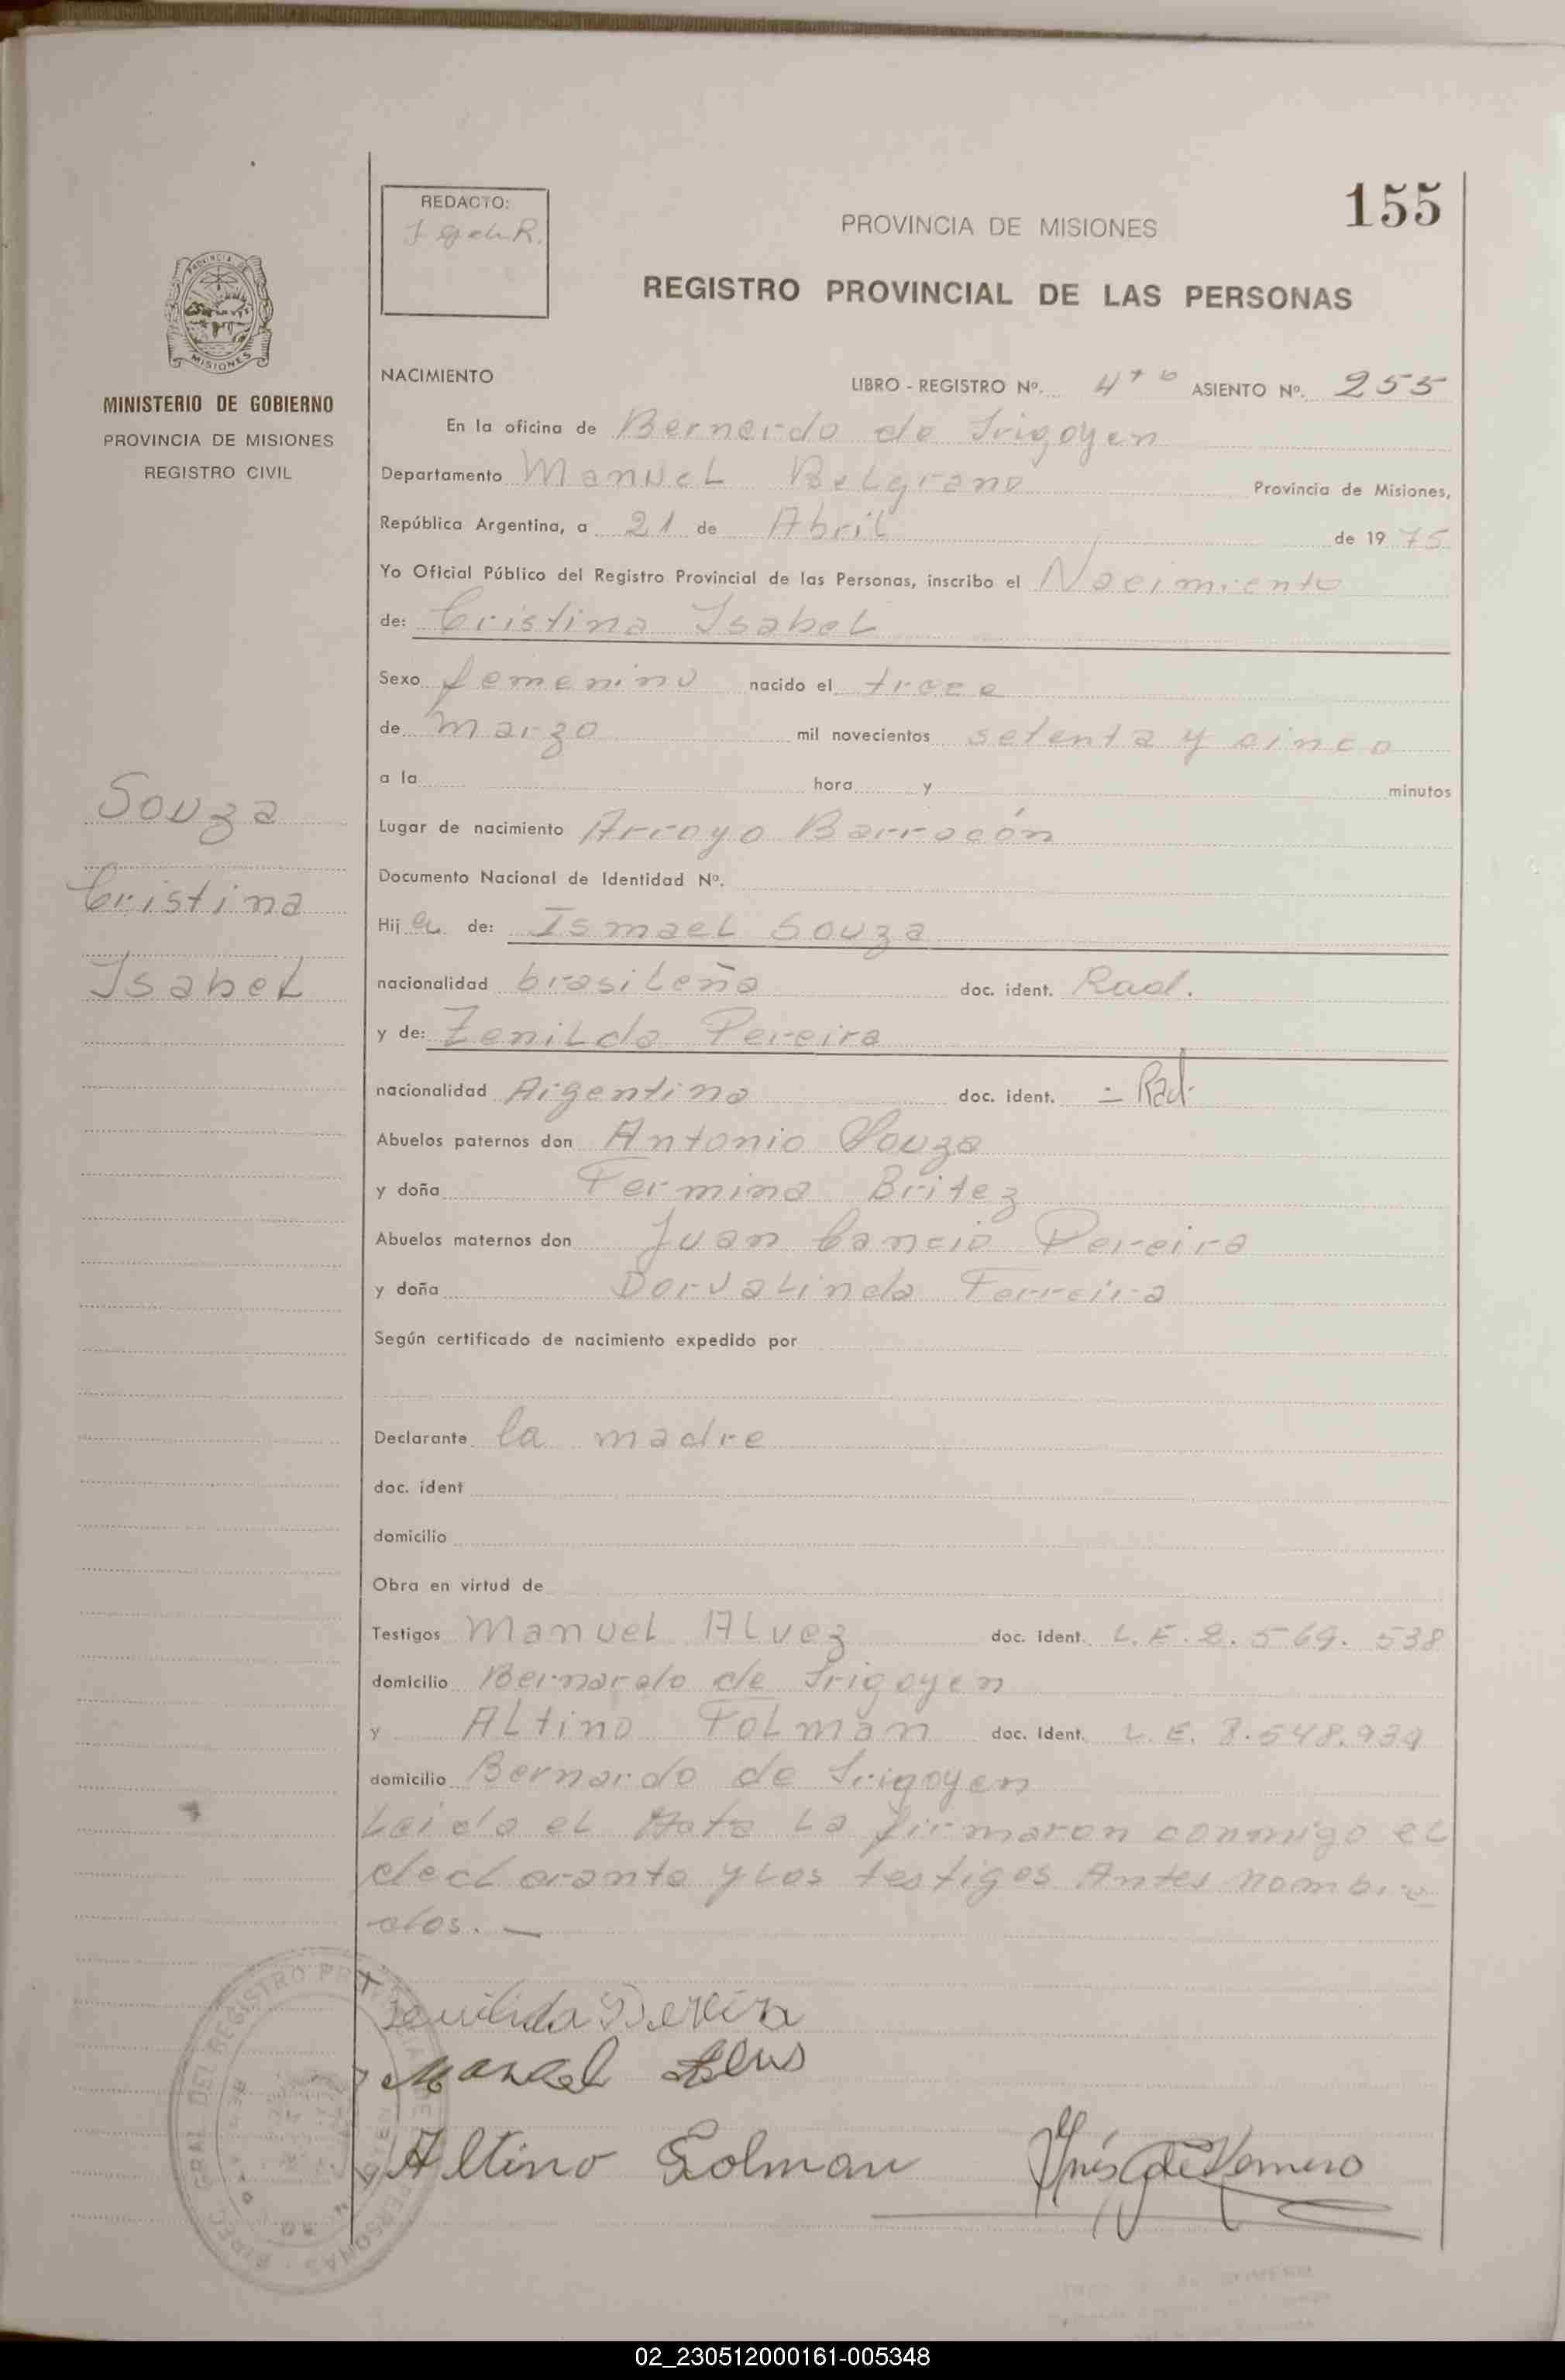 155
REDACTO:
PROVINCIA DE MISIONES
REGISTRO PROVINCIAL DE LAS PERSONAS
MISIONES
MINISTERIO DE GOBIERNO
PROVINCIA DE MISIONES
REGISTRO CIVIL
NACIMIENTO
LIBRO - REGISTRO Nº. 4to ASIENTO Nº. 255
En la oficina de Bernardo de Irigoyen
Departamento Manuel Belgrano Provincia de Misiones,
República Argentina, a 21 de Abril de 1975
Yo Oficial Público del Registro Provincial de las Personas, inscribo el Nacimiento
de: Cristina Isabel
Sexo femenino nacido el trece
de marzo mil novecientos setenta y cinco
a la hora y minutos
Souza
Cristina
Isabel
Lugar de nacimiento Arroyo Barracón
Documento Nacional de Identidad Nº.
Hija de: Ismael Souza
nacionalidad brasileña doc. ident. Rad.
y de: Zenilda Pereira
nacionalidad Argentina doc. ident. = Rad.
Abuelos paternos don Antonio Souza
y doña Fermina Britez
Abuelos maternos don Juan Cancio Pereira
y doña Dorvalinda Ferreira
Según certificado de nacimiento expedido por
Declarante la madre
doc. ident
domicilio
Obra en virtud de
Testigos Manuel Alvez doc. ident. L.E. 2.569.538
domicilio Bernardo de Irigoyen
y Altino Folman doc. ident. L.E. 8.548.939
domicilio Bernardo de Irigoyen
Leida el Acta la firmaron conmigo el
declarante y los testigos Antes nombra
dos. —
Altino Folman
02_230512000161-005348